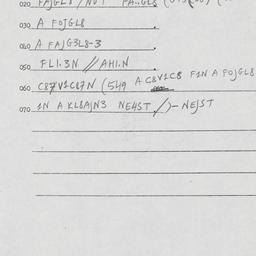 020 FAJGL8 / NOT
030 A FOJGL8
040 A FAJG3L8-3
050 FLI.3N // AHI.N
060 C87V1C87N (549 A C8V1C8 F1N A FOJGL8
070 1N A KL8AJN3 NE4ST /)-NEJST